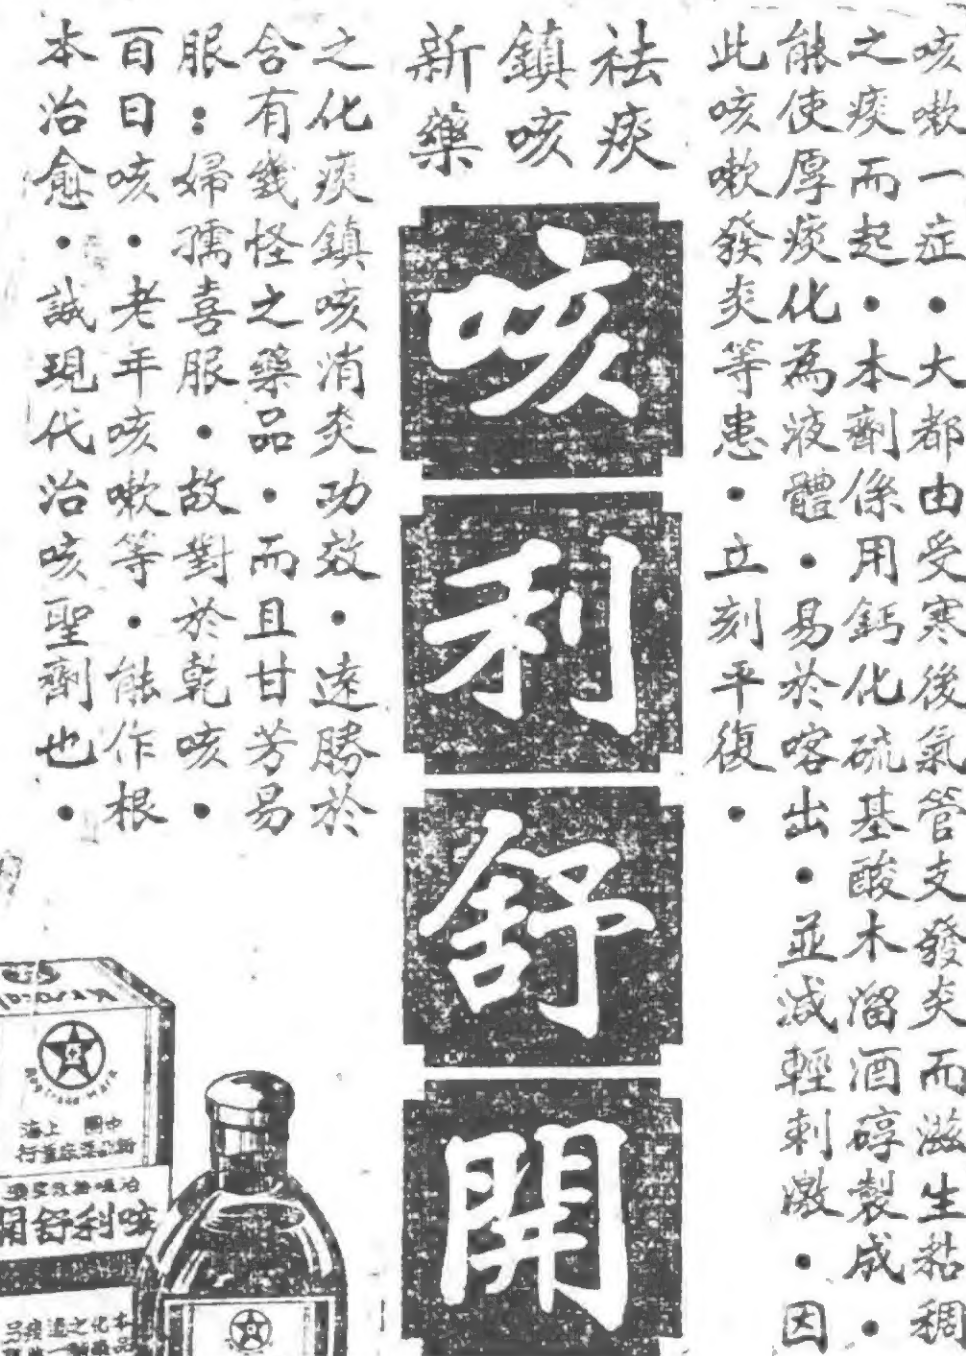 咳嗽一症・大都由受寒後氣管支發炎而滋生黏稠
之痰而起・本劑係用鈣化硫基酸木溜酒醇製成・
能使厚痰化為液體・易於喀出・並減輕刺激・因
此咳嗽發炎等患・立刻平復・
祛痰
鎮咳
新藥
咳利舒開
之化痰鎮咳消炎功效・遠勝於
含有幾怪之藥品・而且甘芳易
服：婦孺喜服・故對於乾咳・
百日咳・老年咳嗽等・能作根
本治愈・誠現代治咳聖劑也・
中國 上海
咳利舒開